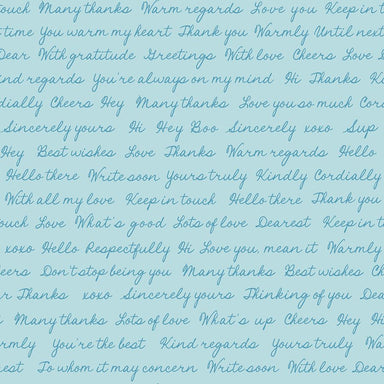 ouch Many thanks Warm regards Love you Keep in t
time You warm my heart Thank you Warmly Until next
Dear With gratitude Greetings With love Cheers Love
ind regards You're always on my mind Hi Thanks K
dially Cheers Hey Many thanks Love you so much Cord
Sincerely yours Hi Hey Boo Sincerely xoxo Sup
Hey Best wishes Love Thanks Warm regards Hello
Hello there Write soon Yours truly Kindly Cordially
With all my love Keep in touch Hello there Thank you
ouch Love What's good Lots of love Dearest Keep in t
xoxo Hello Respectfully Hi Love you, mean it Warmly
eers Don't stop being you Many thanks Best wishes Ch
r Thanks xoxo Sincerely yours Thinking of you Dea
Many thanks Lots of love What's up Cheers Hey Hi
rmly You're the best Kind regards Yours truly Wa
est To whom it may concern Write soon With love Dear